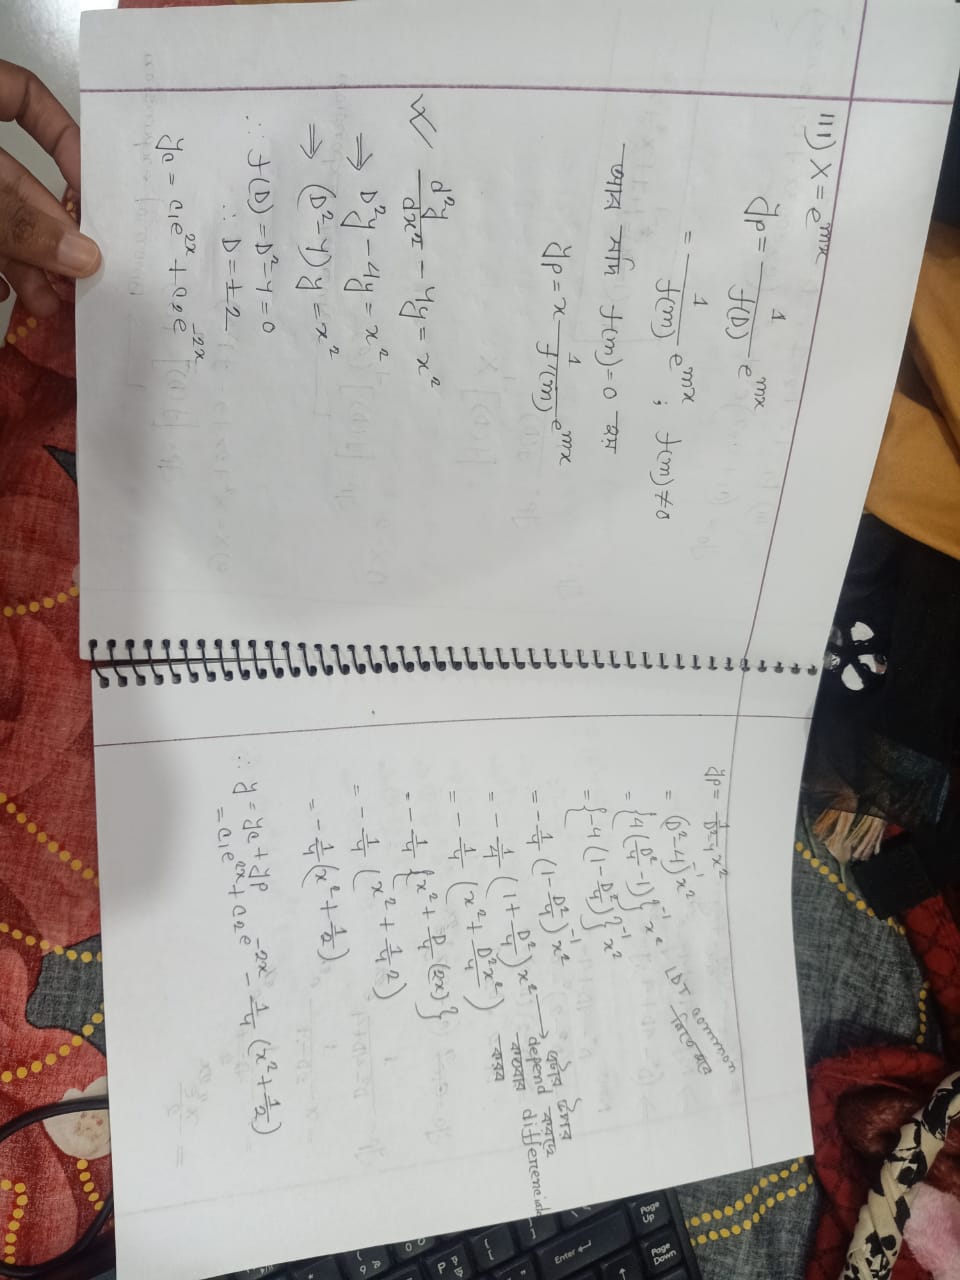 111) X = e^{mx}
y_p = \frac{1}{f(D)} e^{mx}
= \frac{1}{f(m)} e^{mx} ; f(m) ≠ 0
আর যদি f(m) = 0 হয়
y_p = x \frac{1}{f'(m)} e^{mx}
\frac{d^2y}{dx^2} - 4y = x^2
⇒ D^2y - 4y = x^2
⇒ (D^2 - 4) y = x^2
∴ f(D) = D^2 - 4 = 0
∴ D = ±2
y_c = c_1e^{2x} + c_2e^{-2x}
y_p = \frac{1}{D^2-4} x^2
= (D^2 - 4)^{-1} x^2
= {4(\frac{D^2}{4} - 1)}^{-1} x^2 common
= {-4(1 - \frac{D^2}{4})}^{-1} x^2
= -\frac{1}{4} (1 - \frac{D^2}{4})^{-1} x^2
= -\frac{1}{4} (1 + \frac{D^2}{4}) x^2 → এটার উপর
depend করছে
কতবার differenciate
করব
= -\frac{1}{4} (x^2 + \frac{D^2x^2}{4})
= -\frac{1}{4} {x^2 + \frac{D}{4} (2x)}
= -\frac{1}{4} (x^2 + \frac{1}{4} 2)
= -\frac{1}{4} (x^2 + \frac{1}{2})
∴ y = y_c + y_p
= c_1e^{2x} + c_2e^{-2x} - \frac{1}{4} (x^2 + \frac{1}{2})
Page Up
Page Down
Enter